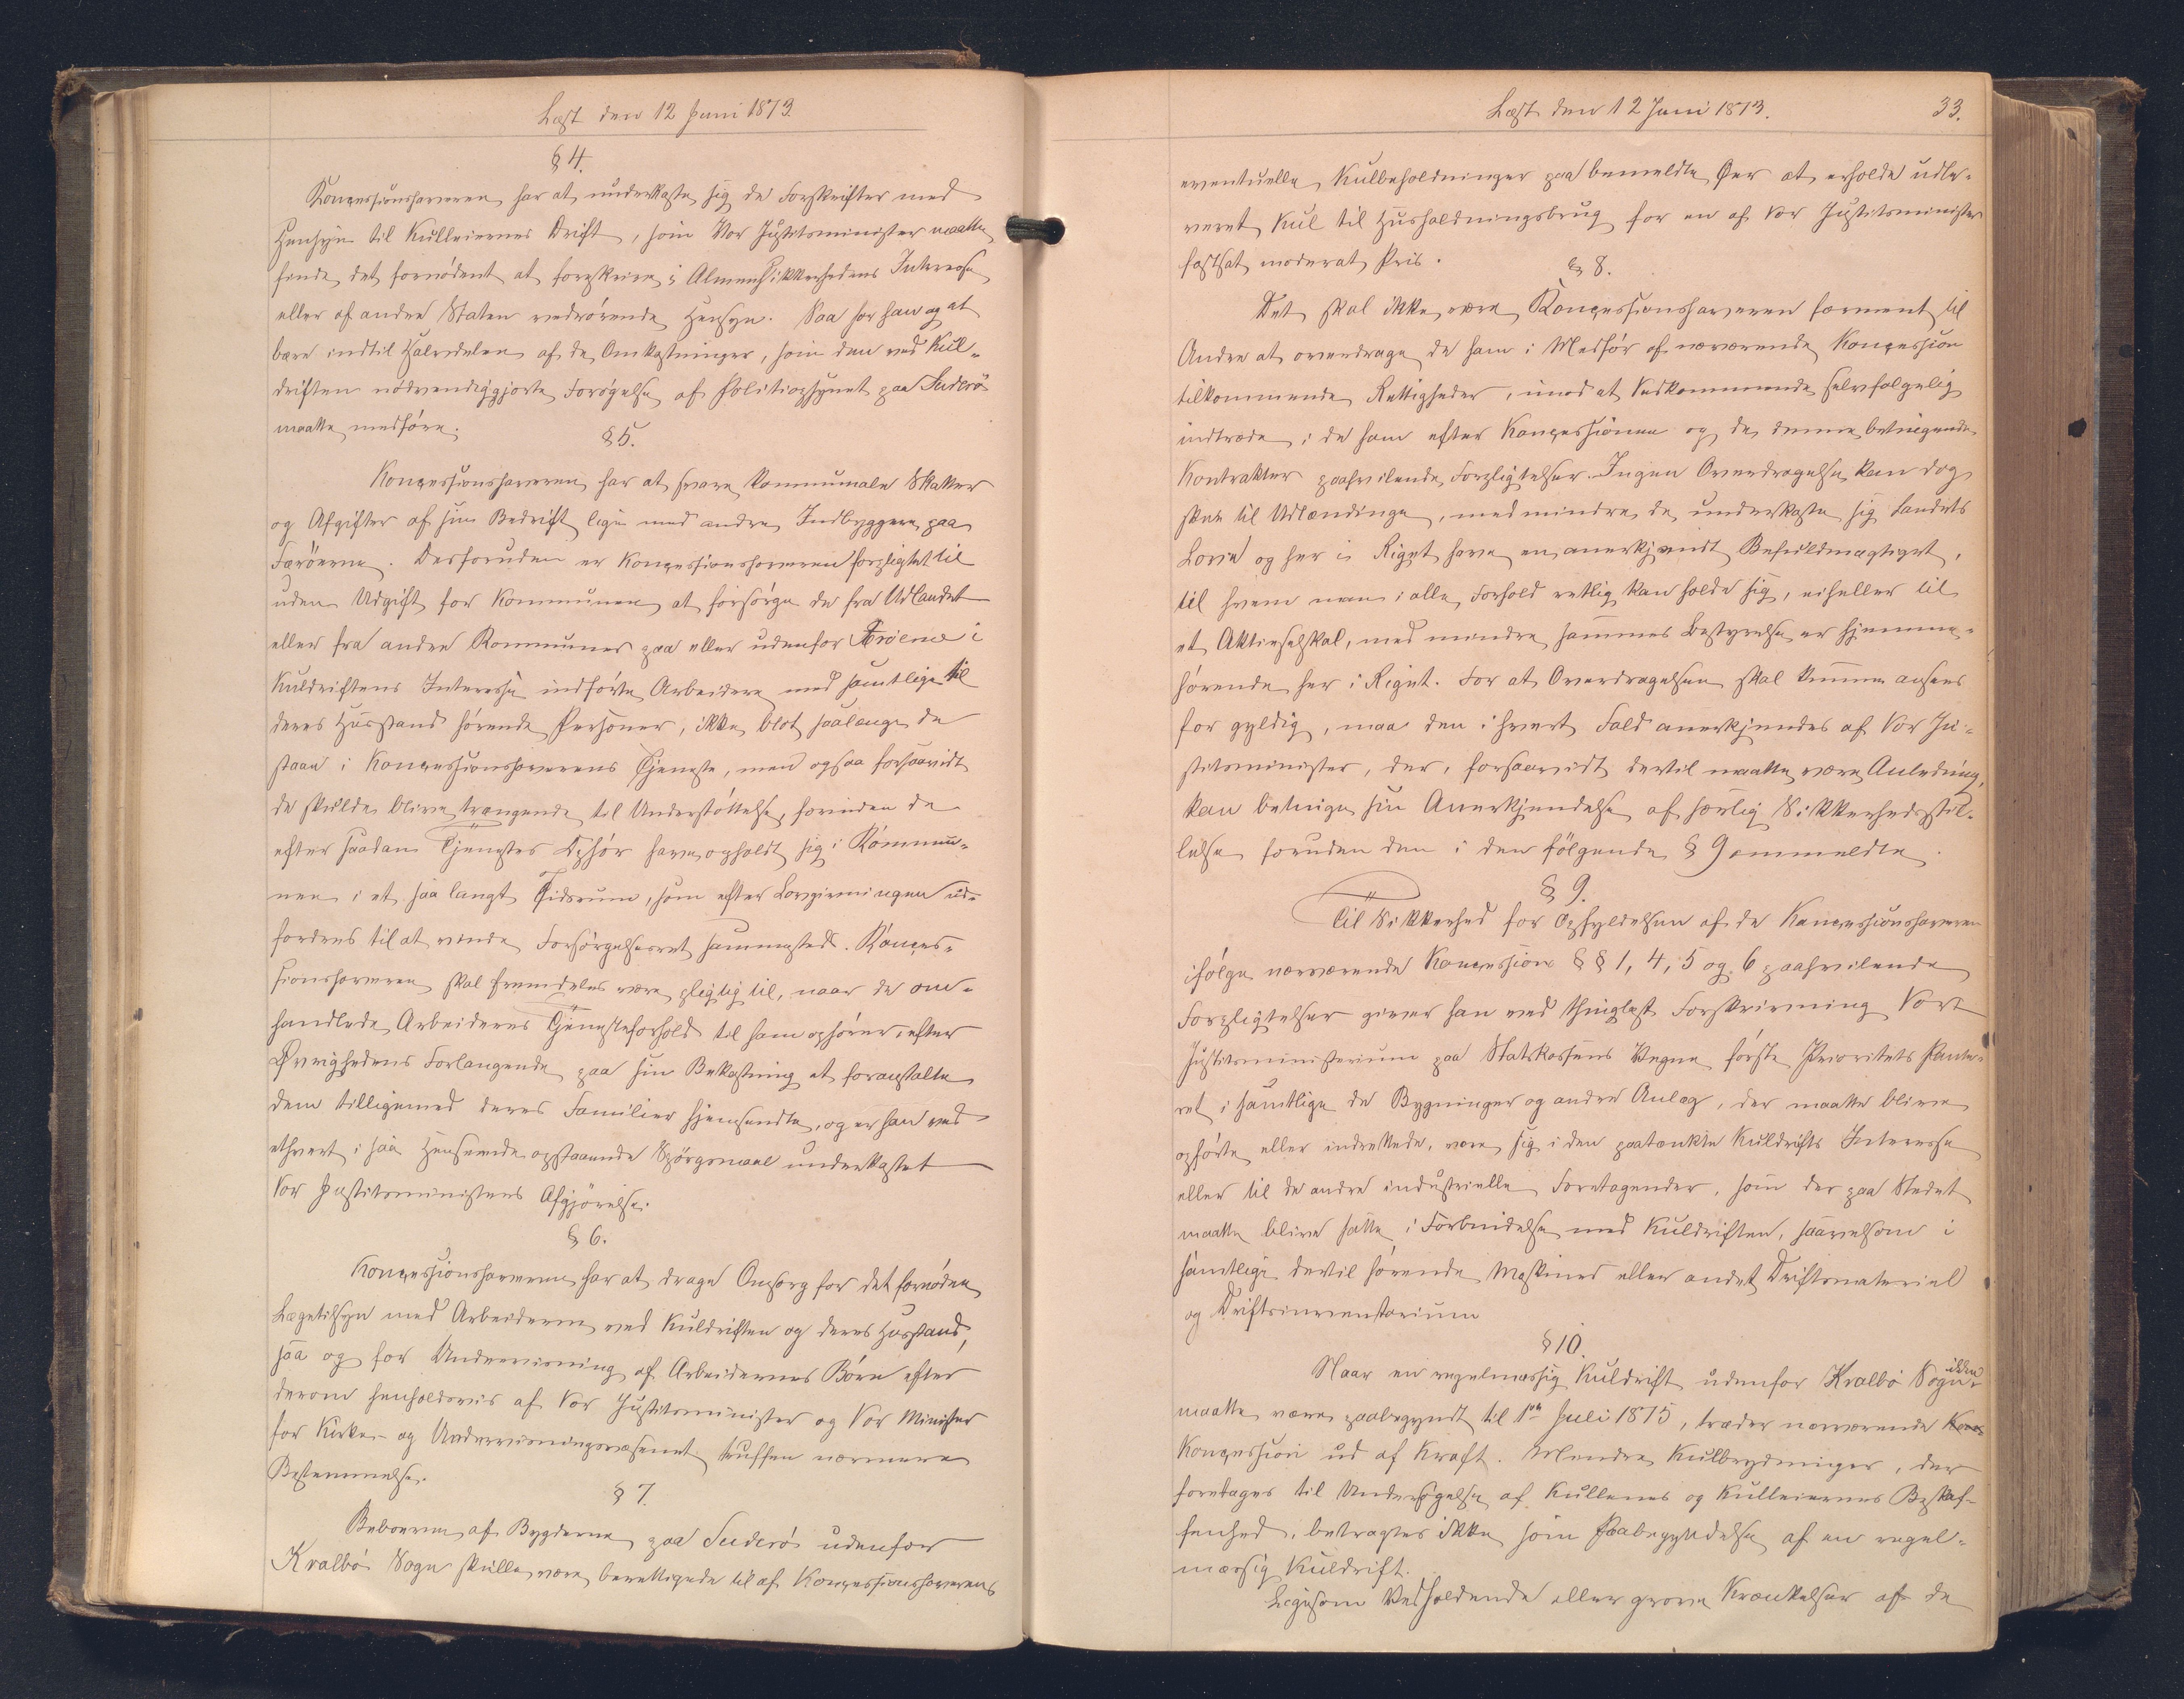 Læst den 12 Juni 1873
§ 4.
Konzessionshaveren har at underkaste sig de Forskrifter med
Hensyn til Kulleiernes Drift, som Vor Justitsminister maatte
finde det fornødent at foreskrive i Almensikkerhedens Interesse
eller af andre Staten vedrørende Hensyn. Saa har han og at
bære indtil Halvdelen af de Omkostninger, som den ved Kul-
driften nødvendiggjorte Forøgelse af Politiopsynet paa Suderö
maatte medføre.
§ 5.
Konzessionshaveren har at svare kommunale Skatter
og Afgifter af sin Bedrift lige med andre Indbyggere paa
Færöerne. Desforuden er Konzessionshaveren forpligtet til
uden Udgift for Kommunen at forsørge de fra Udlandet
eller fra andre Kommuner paa eller udenfor Færöerne i
Kuldriftens Interesse indførte Arbeidere med samtlige til
deres Husstand hørende Personer, ikke blot saalænge de
staae i Konzessionshaverens Tjeneste, men ogsaa forsaavidt
de skulde blive trængende til Understøttelse, forinden de
efter saadan Tjenestes Ophør have opholdt sig i Kommu-
nen i et saa langt Tidsrum, som efter Lovgivningen ud-
fordres til at vinde Forsørgelsesret sammesteds. Konzes-
sionshaveren skal fremdeles være pligtig til, naar de om-
handlede Arbeideres Tjenesteforhold til ham ophører, efter
Øvrighedens Forlangende paa sin Bekostning at foranstalte
dem tilligemed deres Familier hjemsendte, og er han ved
ethvert i saa Henseende opstaaende Spörgsmaal underkastet
Vor Justitsministers Afgjörelse.
§ 6.
Konzessionshaveren har at drage Omsorg for det fornødne
Lægetilsyn med Arbeiderne ved Kuldriften og deres Husstand,
saa og for Underviisning af Arbeidernes Børn efter
derom henholdsvis af Vor Justitsminister og Vor Minister
for Kirke- og Underviisningsvæsenet truffen nærmere
Bestemmelse.
§ 7.
Beboerne af Bygderne paa Suderö udenfor
Kvalbö Sogn skulle være berettigede til af Konzessionshaverens
Læst den 12 Juni 1873.
33.
eventuelle Kulbeholdninger paa bemeldte Øer at erholde udle-
veret Kul til Husholdningsbrug for en af Vor Justitsminister
fastsat moderat Pris.
§ 8.
Det skal ikke være Konzessionshaveren forment til
Andre at overdrage de ham i Medfør af nærværende Konzession
tilkommende Rettigheder, imod at Vedkommende selvfølgelig
indtræde i de ham efter Konzessionen og de denne betingende
Kontrakter paahvilende Forpligtelser. Ingen Overdragelse kan dog
skee til Udlændinge, medmindre de underkaste sig Landets
Love og her i Riget have en anerkjendt Befuldmægtiget,
til hvem man i alle Forhold retlig kan holde sig, eiheller til
et Aktieselskab, med mindre sammes Bestyrelse er hjemme-
hørende her i Riget. For at Overdragelsen skal kunne ansees
for gyldig, maa den i hvert Fald anerkjendes af Vor Ju-
stitsminister, der, forsaavidt dertil maatte være Anledning,
kan betinge sin Anerkjendelse af særlig Sikkerhedsstil-
lelse foruden den i den følgende § 9 ommeldte.
§ 9.
Til Sikkerhed for Opfyldelsen af de Konzessionshaveren
ifølge nærværende Konzessions § § 1, 4, 5 og 6 paahvilende
Forpligtelser giver han ved thinglæst Forskrivning Vort
Justitsministerium paa Statskassens Vegne første Prioritets Pante-
ret i samtlige de Bygninger og andre Anlæg, der maatte blive
opførte eller indrettede, være sig i den paatænkte Kuldrifts Interesse
eller til de andre industrielle Foretagender, som der paa Stedet
maatte blive satte i Forbindelse med Kuldriften, saavelsom i
samtlige dertil hørende Maskiner eller andet Driftsmateriel
og Driftsinventarium
§ 10.
Naar en regelmæssig Kuldrift udenfor Kvalbö Sogn ikke
maatte være paabegyndt til 1ste Juli 1875, træder nærværende
Konzession ud af Kraft. Mindre Kulbrydninger, der
foretages til Undersøgelse af Kullenes og Kulleiernes Beskaf-
fenhed, betragtes ikke som Paabegyndelse af en regel-
mæssig Kuldrift.
Ligesom Vedholdende eller grove Krænkelser af de